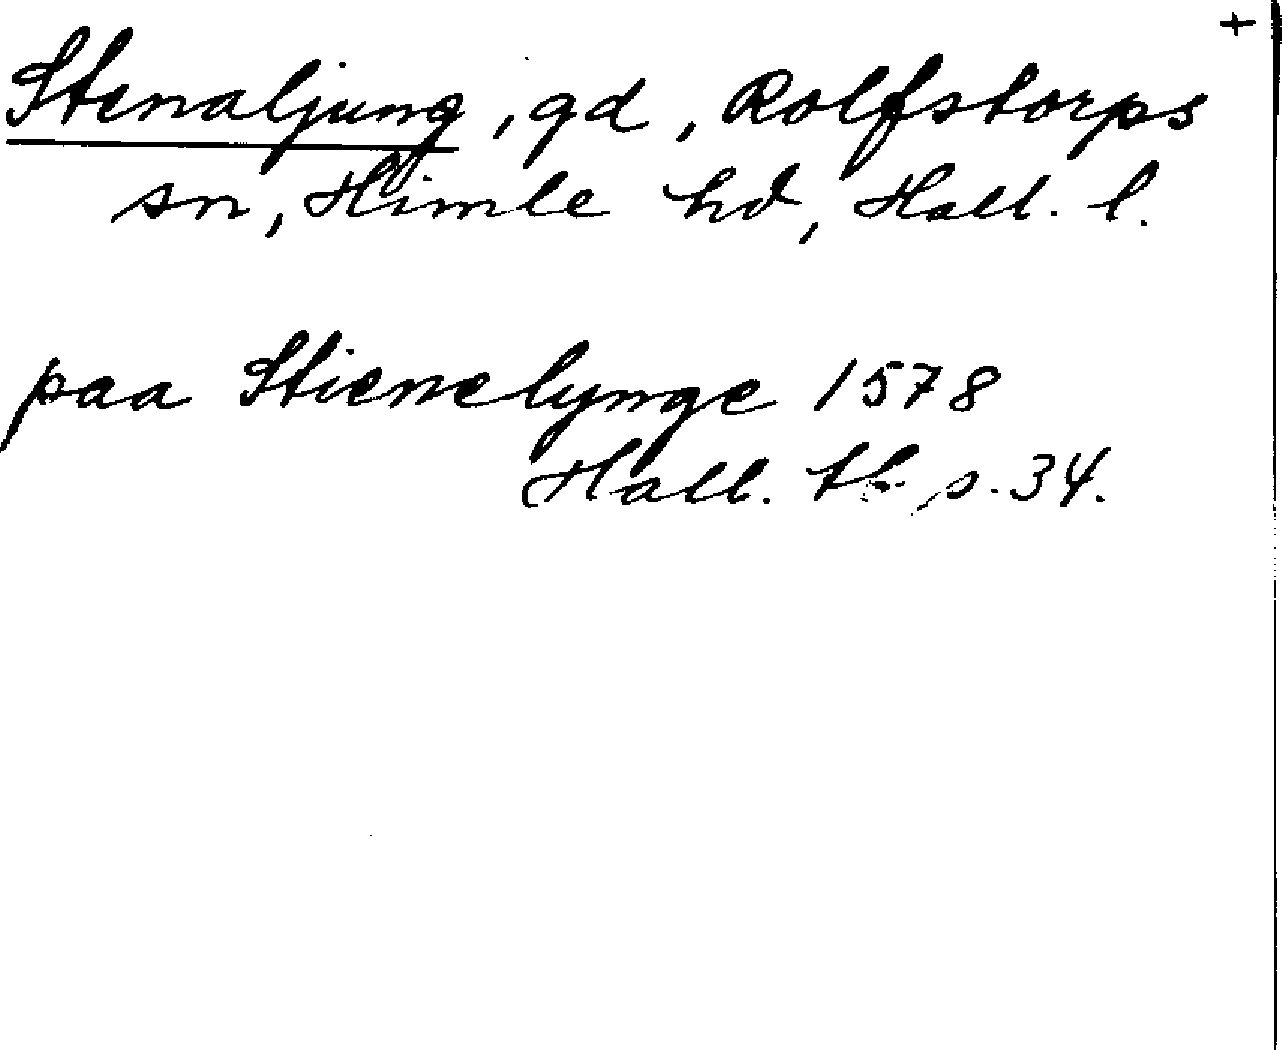 +
Stenaljung, gd, Rolfstorps
sn, Himle hd, Hall. l.
paa Stienelynge 1578
Hall. tb. s. 34.